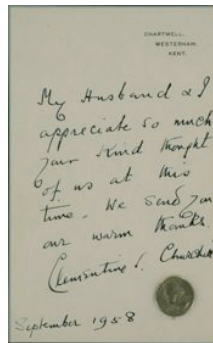 CHARTWELL,
WESTERHAM,
KENT.
My Husband & I
appreciate so much
your kind thought
of us at this
time. We send you
our warm thanks.
Clementine S. Churchill
September 1958